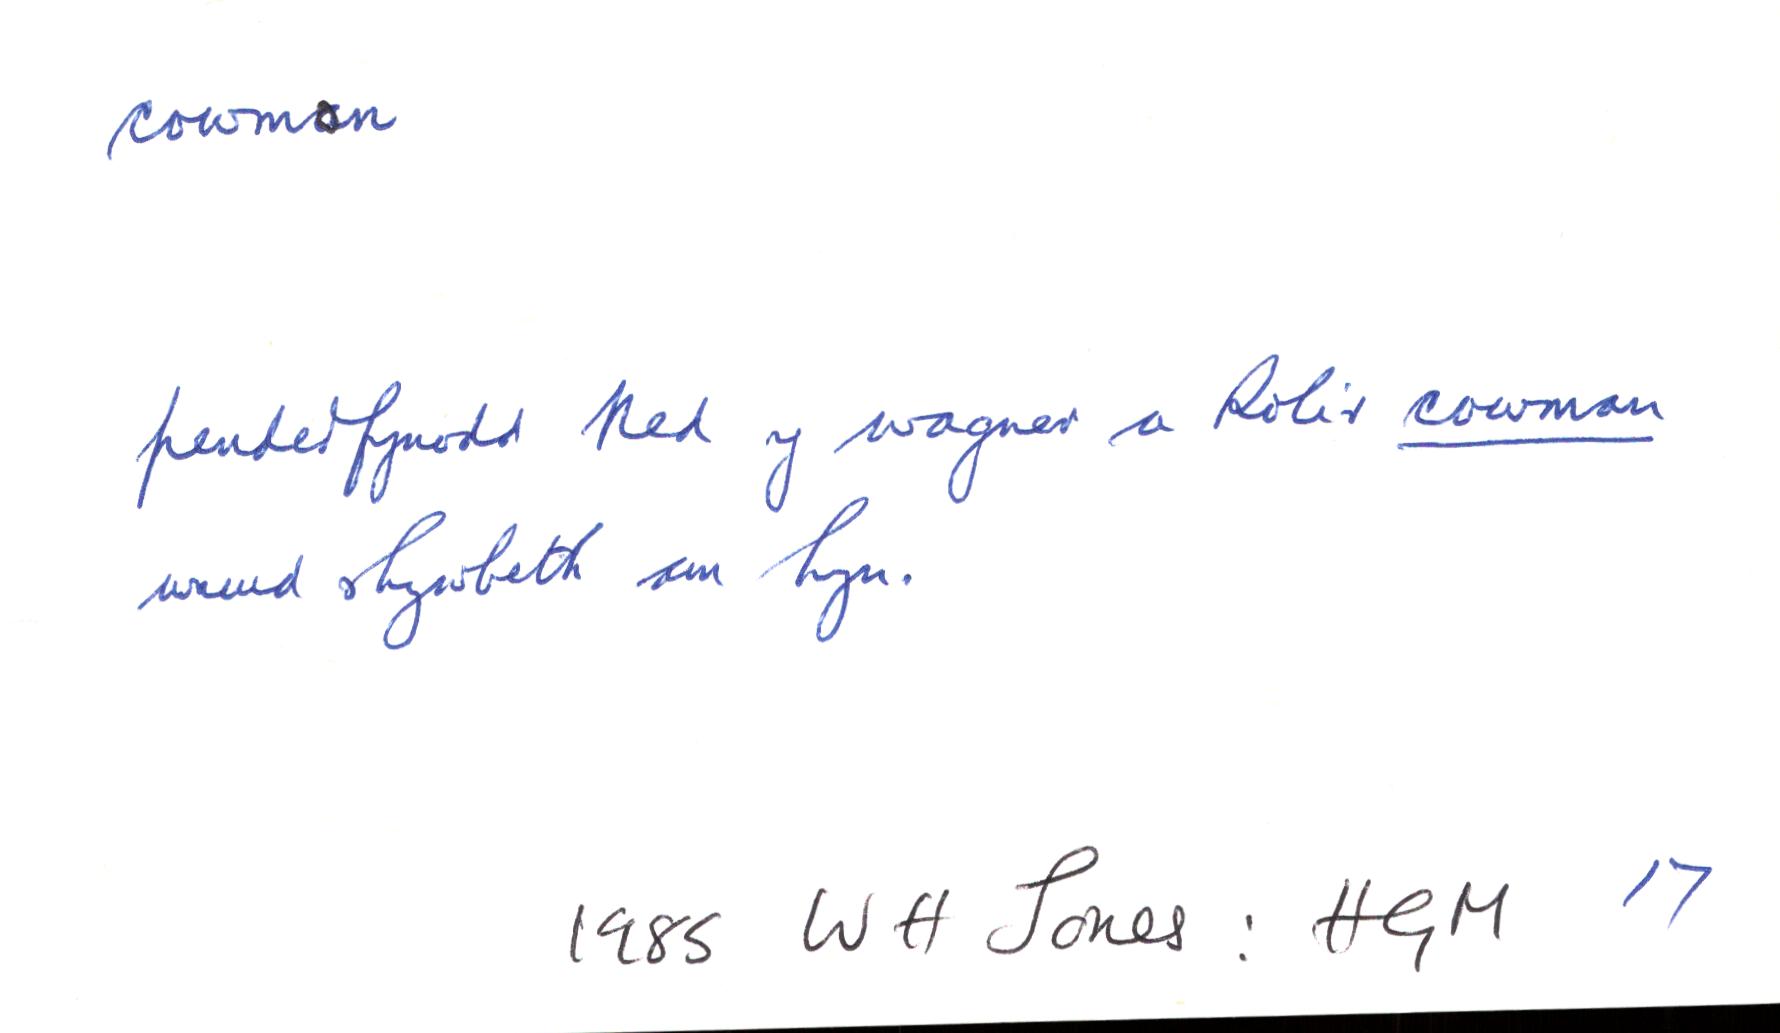 cowmon
penderfynodd Ned y wagner a Robir cowman
wneud rhywbeth am hyn.
1985 WH Jones : HGM 17